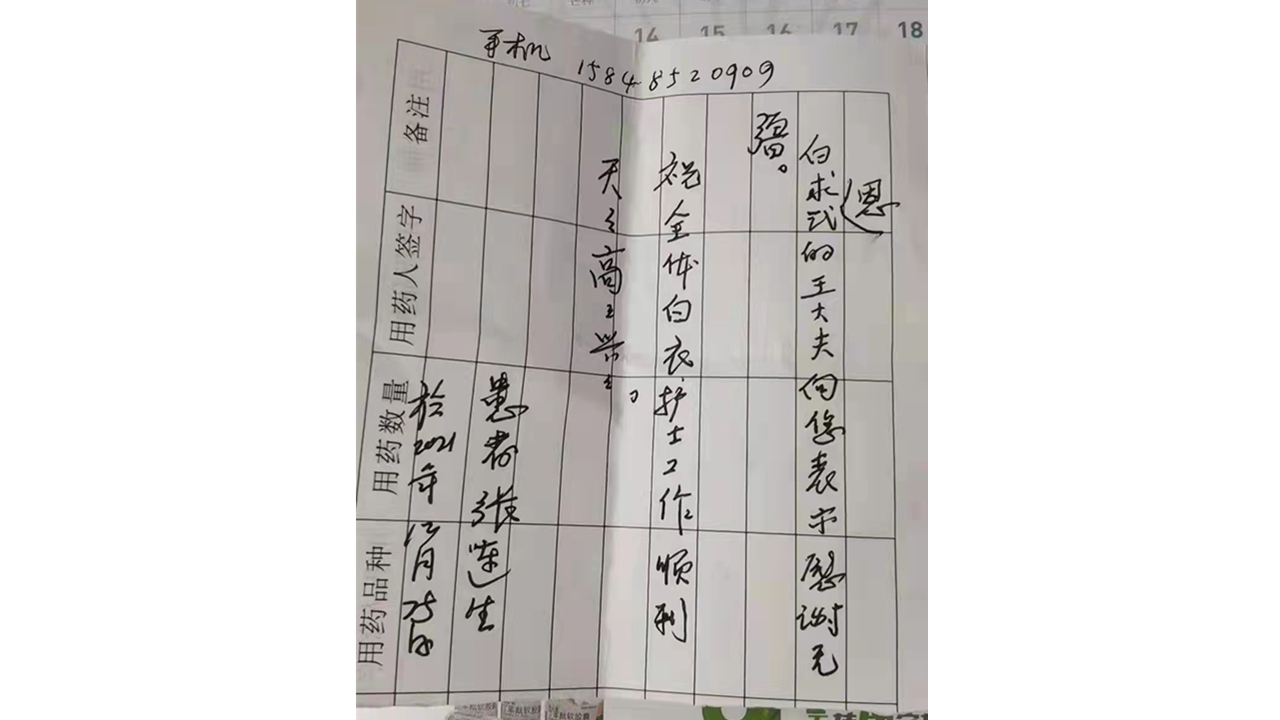 14 15 16 17 18
手机 15848520909
白求恩式的王大夫向您表示感谢无
疆。
祝全体白衣护士工作顺利
天天高高兴兴。
患者张连生
於2021年12月25日
备注
用药人签字
用药数量
用药品种